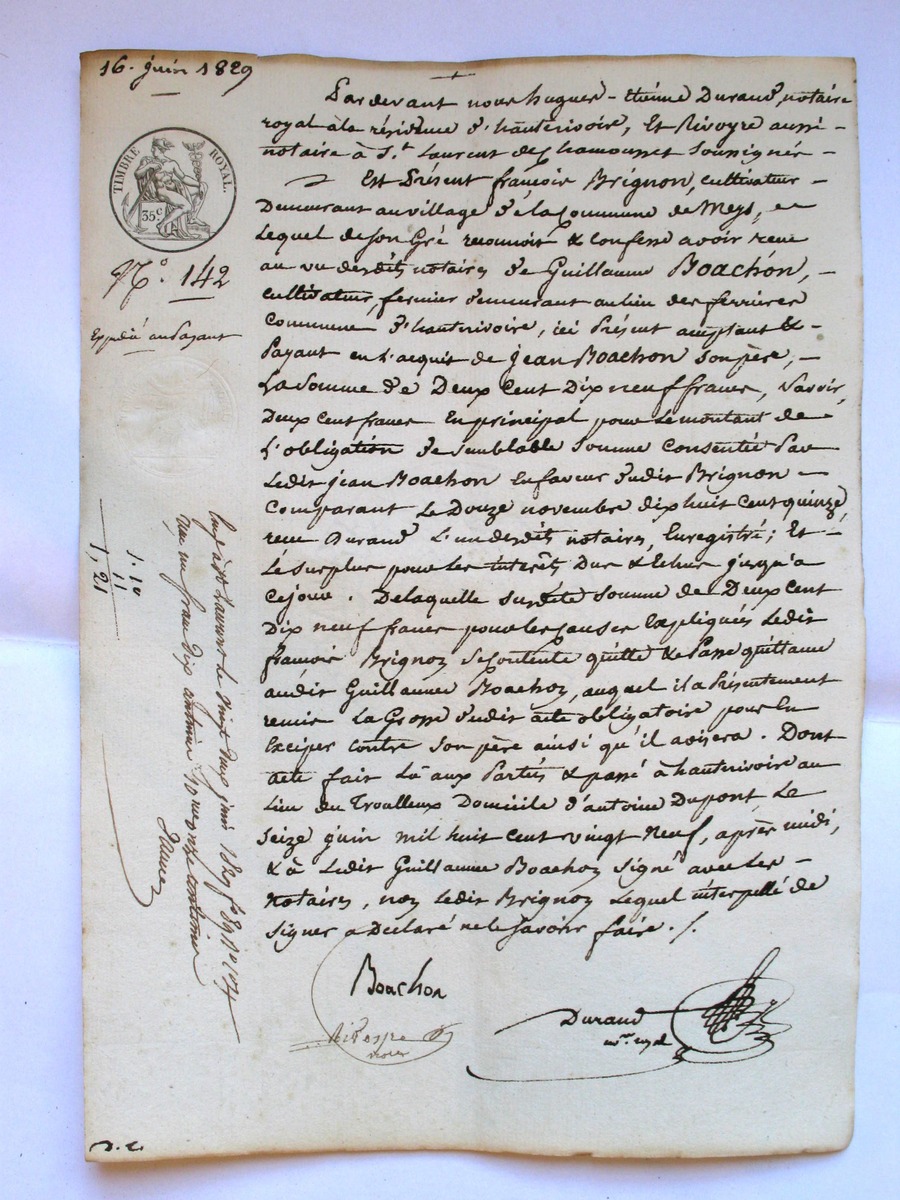 16. juin 1829
TIMBRE ROYAL.
35 c
N.º 142
Expédié au payant
Pardevant nous hugues-étienne Durand, notaire
royal à la résidence d'hauterivoire, Et Rivoyre aussi
notaire à S.t Laurent de Chamousset soussignés
Est Présent françois Brignon, cultivateur
Demeurant au village de la Commune de Meys,
Lequel de son Gré reconnoit & confesse avoir reçu
au vu desdits notaires de Guillaume Boachon,
cultivateur, fermier demeurant au lieu des ferrières
Commune d'hauterivoire, ici Présent acceptant &
Payant en l'acquit de jean Boachon son père,
La Somme de Deux Cent Dix neuf francs, Savoir,
Deux Cent francs En principal pour le montant de
L'obligation de semblable somme Consentie Par
Ledit jean Boachon En faveur dudit Brignon
Comparant Le Douze novembre dix huit Cent quinze
reçue Durand L'un desdits notaires, Enregistré; Et
Le surplus pour les interêts Dus & Echus jusqu'à
Ce jour. De laquelle susdite somme de Deux cent
Dix neuf francs pour les Causes Expliquées Ledit
francois Brignon se Contente quitte & Passe quittance
audit Guillaume Boachon, auquel il a Présentement
remis La Grosse dudit acte obligatoire pour En
Exciper contre son père ainsi qu'il avisera. Dont
acte fait Lû aux Parties & passé à hauterivoire au
Lieu du Troulleux Domicile d'antoine Dupont Le
Seize juin mil huit cent vingt Neuf, après midi,
& à Ledit Guillaume Boachon signé avec Les
Notaires, non Ledit Brignon Lequel interpellé de
Signer a Déclaré ne le savoir faire. /.
Boachon
Durand
n.re royal
1. 10
11
1, 21